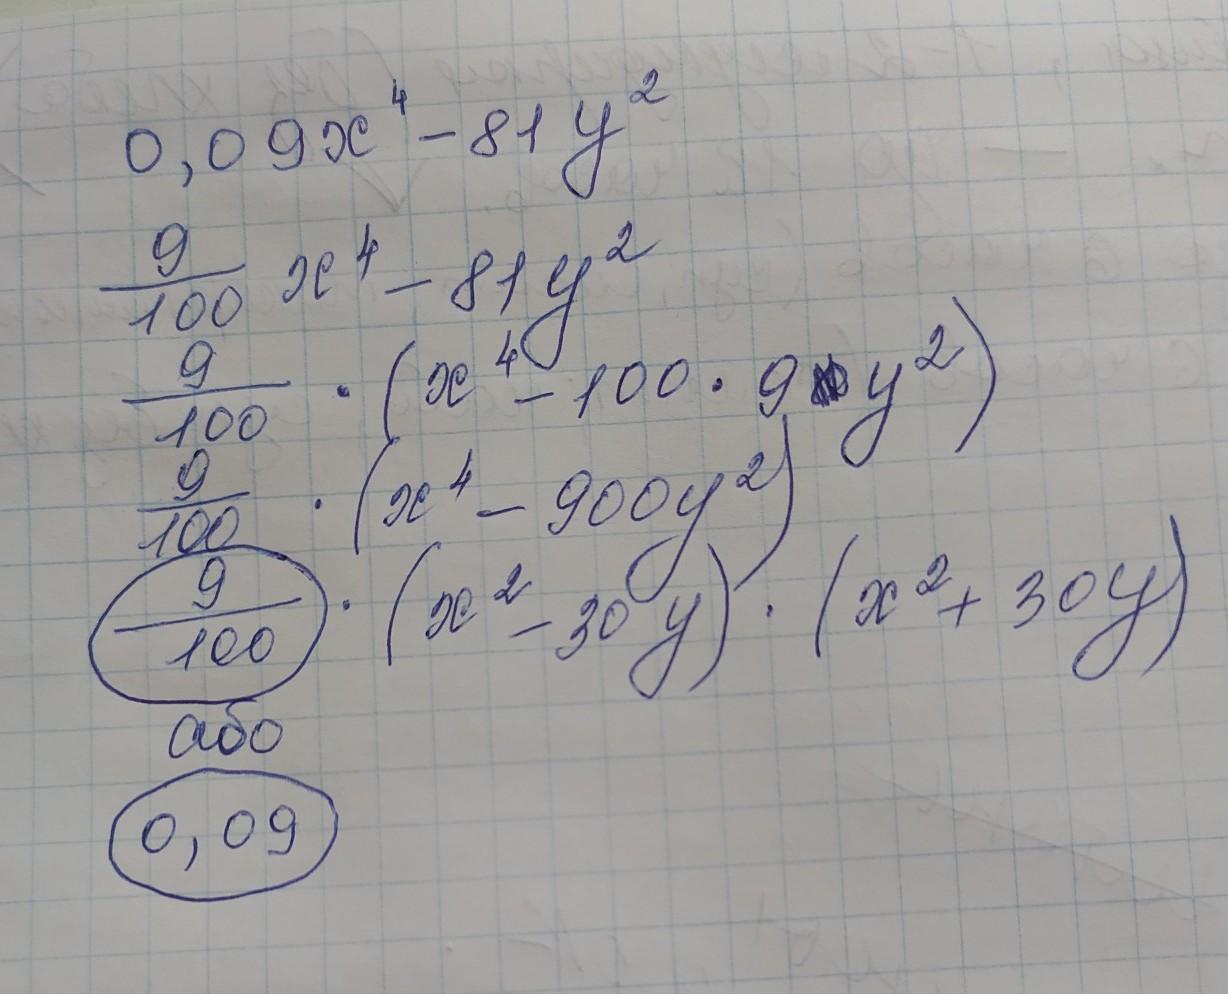 0,09x⁴ - 81y²
9/100 x⁴ - 81y²
9/100 · (x⁴ - 100 · 9 y²)
9/100 · (x⁴ - 900y²)
9/100 · (x² - 30y) · (x² + 30y)
або
0,09